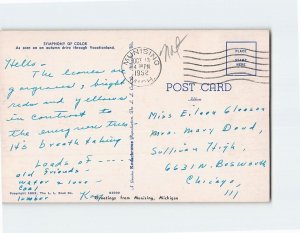 SYMPHONY OF COLOR
As seen on an autumn drive through Vacationland.
Hello -
The leaves are
gorgeous, bright
reds and yellows
in contrast to
the evergreen trees
It's breath taking
Loads of ---
old friends -
water & love -
coal
lumber Kay
Greetings from Munising, Michigan
MUNISING
OCT 13
4 PM
1952
MICH.
PLACE
STAMP
HERE
POST CARD
Address
Miss Eileen Gleason
Mrs. Mary Doud,
Sullivan High,
6631 N. Bosworth
Chicago,
Ill